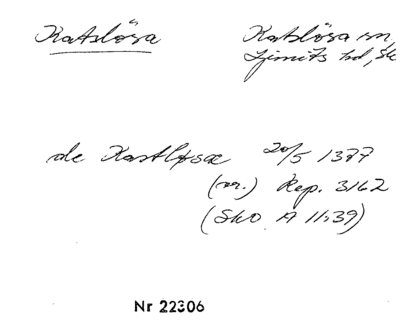 Katslösa Katslösa sn,
Ljunits hd, Sk
de Kastløsæ 20/5 1377
(or.) Rep. 3162
(SkO A 11:39)
Nr 22306